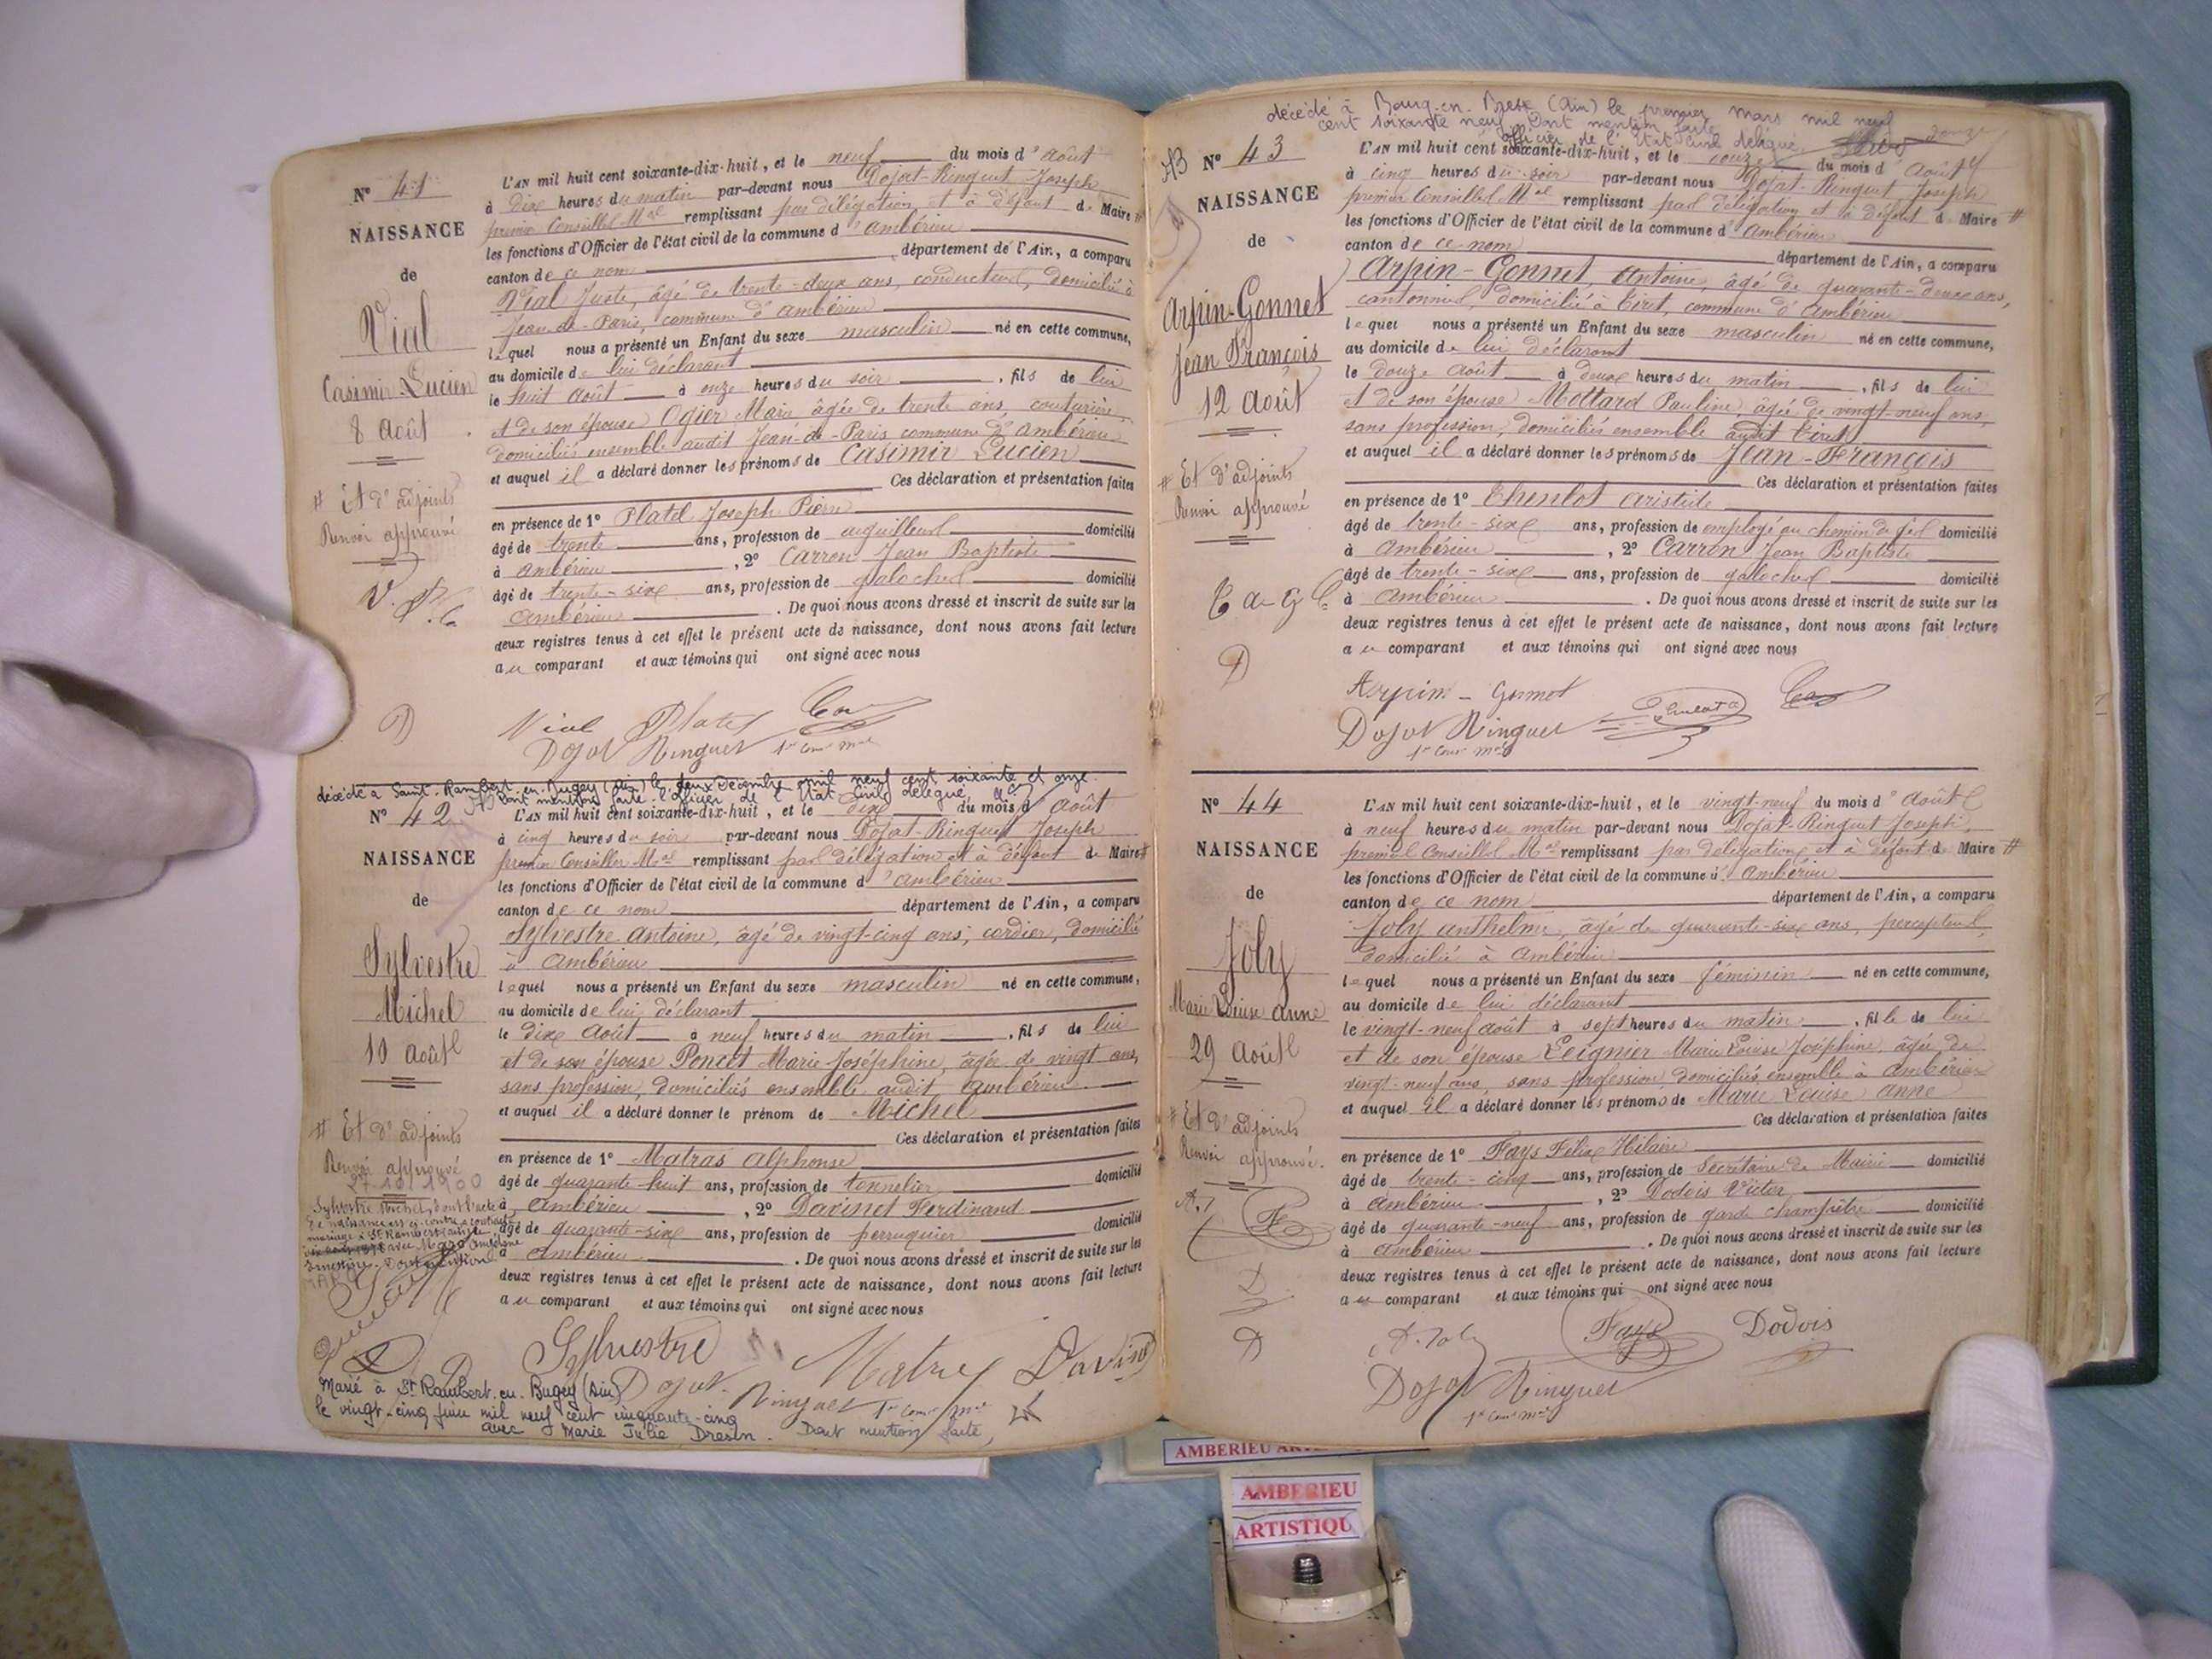 N° 41
NAISSANCE
de
Vial
Casimir Lucien
8 Août
# Et d'adjoints
Renvoi approuvé
L'AN mil huit cent soixante-dix-huit, et le neuf du mois d'Août
à dix heures du matin par-devant nous Dojat-Ringuet Joseph
premier Conseiller Mal remplissant par délégation et à défaut de Maire #
les fonctions d'Officier de l'état civil de la commune d'Ambérieu
canton de ce nom département de l'Ain, a comparu
Vial Juste, âgé de trente-deux ans, conducteur, domicilié à
Jean-de-Paris, commune d'Ambérieu
lequel nous a présenté un Enfant du sexe masculin né en cette commune,
au domicile de lui déclarant
le huit Août à onze heures du soir, fils de lui
et de son épouse Ogier Marie âgée de trente ans, couturière,
domiciliés ensemble audit Jean-de-Paris commune d'Ambérieu
et auquel il a déclaré donner les prénoms de Casimir Lucien
Ces déclaration et présentation faites
en présence de 1° Platel Joseph Pierre
âgé de trente ans, profession de aiguilleur domicilié
à Ambérieu, 2° Carron Jean Baptiste
âgé de trente-six ans, profession de galocher domicilié
Ambérieu. De quoi nous avons dressé et inscrit de suite sur les
deux registres tenus à cet effet le présent acte de naissance, dont nous avons fait lecture
au comparant et aux témoins qui ont signé avec nous
Vial Platel
Dojat Ringuet 1er Conser Mal
décédé à Saint-Rambert-en-Bugey (Ain) le deux Décembre mil neuf cent soixante et onze.
Dont mention faite. l'Officier de l'Etat Civil délégué,
N° 42
NAISSANCE
de
Sylvestre
Michel
10 Août
# Et d'adjoints
Renvoi approuvé
L'AN mil huit cent soixante-dix-huit, et le dix du mois d'Août
à cinq heures du soir par-devant nous Dojat-Ringuet Joseph
premier Conseiller Mal remplissant par délégation et à défaut de Maire #
les fonctions d'Officier de l'état civil de la commune d'Ambérieu
canton de ce nom département de l'Ain, a comparu
Sylvestre Antoine, âgé de vingt-cinq ans, cordier, domicilié
à Ambérieu
lequel nous a présenté un Enfant du sexe masculin né en cette commune,
au domicile de lui déclarant
le dix Août à neuf heures du matin, fils de lui
et de son épouse Poncet Marie Joséphine, âgée de vingt ans,
sans profession, domiciliés ensemble audit Ambérieu
et auquel il a déclaré donner le prénom de Michel
Ces déclaration et présentation faites
en présence de 1° Matras Alphonse
âgé de quarante-huit ans, profession de tonnelier domicilié
à Ambérieu, 2° Davinet Ferdinand
âgé de quarante-six ans, profession de perruquier domicilié
à Ambérieu. De quoi nous avons dressé et inscrit de suite sur les
deux registres tenus à cet effet le présent acte de naissance, dont nous avons fait lecture
au comparant et aux témoins qui ont signé avec nous
Sylvestre Matras Davinet
Dojat Ringuet 1er Conser Mal
Marié à St Rambert-en-Bugey (Ain)
le vingt-cinq juin mil neuf cent cinquante-cinq
avec Marie Julie Dresin. Dont mention faite,
décédé à Bourg-en-Bresse (Ain) le premier mars mil neuf
cent soixante neuf. Dont mention faite
Officier de l'Etat Civil délégué,
N° 43
NAISSANCE
de
Arpin-Gonnet
Jean François
12 Août
# Et d'adjoints
Renvoi approuvé
L'AN mil huit cent soixante-dix-huit, et le douze du mois d'Août
à cinq heures du soir par-devant nous Dojat-Ringuet Joseph
premier Conseiller Mal remplissant par délégation et à défaut de Maire #
les fonctions d'Officier de l'état civil de la commune d'Ambérieu
canton de ce nom département de l'Ain, a comparu
Arpin-Gonnet, Antoine, âgé de quarante-deux ans,
cantonnier, domicilié à Tiret, commune d'Ambérieu
lequel nous a présenté un Enfant du sexe masculin né en cette commune,
au domicile de lui déclarant
le douze Août à deux heures du matin, fils de lui
et de son épouse Mottard Pauline, âgée de vingt-neuf ans,
sans profession, domiciliés ensemble audit Tiret
et auquel il a déclaré donner les prénoms de Jean-François
Ces déclaration et présentation faites
en présence de 1° Chenlot Aristide
âgé de trente-six ans, profession de employé au chemin de fer domicilié
à Ambérieu, 2° Carron Jean Baptiste
âgé de trente-six ans, profession de galocher domicilié
à Ambérieu. De quoi nous avons dressé et inscrit de suite sur les
deux registres tenus à cet effet le présent acte de naissance, dont nous avons fait lecture
au comparant et aux témoins qui ont signé avec nous
Arpin-Gonnet
Dojat Ringuet
1er Conser Mal
N° 44
NAISSANCE
de
Joly
Marie Louise Anne
29 Août
# Et d'adjoints
Renvoi approuvé.
L'AN mil huit cent soixante-dix-huit, et le vingt-neuf du mois d'Août
à neuf heures du matin par-devant nous Dojat-Ringuet Joseph,
premier Conseiller Mal remplissant par délégation et à défaut de Maire #
les fonctions d'Officier de l'état civil de la commune d'Ambérieu
canton de ce nom département de l'Ain, a comparu
Joly Anthelme, âgé de quarante-six ans, percepteur,
domicilié à Ambérieu
lequel nous a présenté un Enfant du sexe féminin né en cette commune,
au domicile de lui déclarant
le vingt-neuf août à sept heures du matin, fille de lui
et de son épouse Leignier Marie Louise Joséphine, âgée de
vingt-neuf ans, sans profession, domiciliés ensemble à Ambérieu
et auquel il a déclaré donner les prénoms de Marie Louise Anne
Ces déclaration et présentation faites
en présence de 1° Fays Félix Hilaire
âgé de trente-cinq ans, profession de Secrétaire de Mairie domicilié
à Ambérieu, 2° Dodois Victor
âgé de quarante-neuf ans, profession de garde champêtre domicilié
à Ambérieu. De quoi nous avons dressé et inscrit de suite sur les
deux registres tenus à cet effet le présent acte de naissance, dont nous avons fait lecture
au comparant et aux témoins qui ont signé avec nous
A. Joly Fays Dodois
Dojat Ringuet
1er Conser Mal
AMBERIEU
AMBERIEU
ARTISTIQU